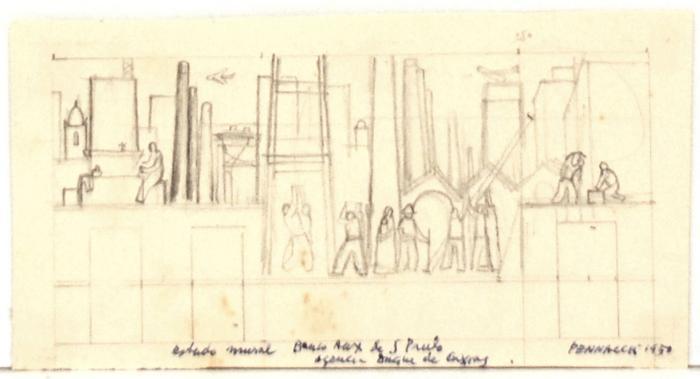 150
estudo mural Banco Aux de S Paulo
agencia Duque de Caxias
PENNACCHI 1950